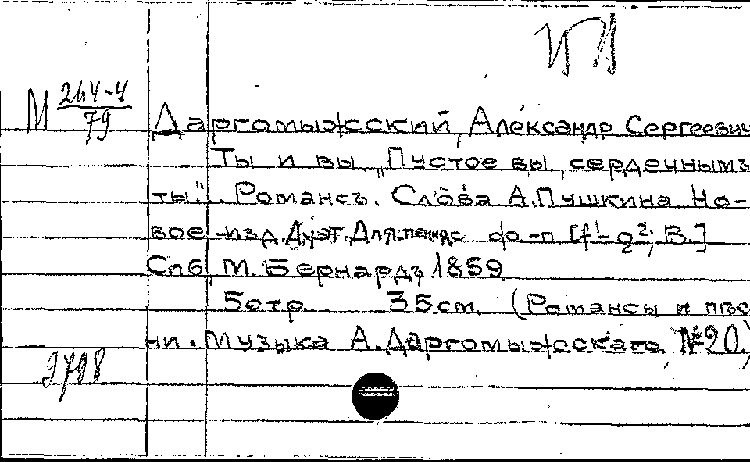 М 244-4
79
Даргомыжсский, Александр Сергеевич
Ты и вы „Пустое вы сердечнымъ
ты". Романсъ. Слова А.Пушкина Но-
вое изд. Для пения с фо-п [f¹-g²; B.]
Спб, М. Бернардъ 1859
5стр. 35см. (Романсы и пѣс
ни. Музыка А.Даргомыжсскаго №20.)